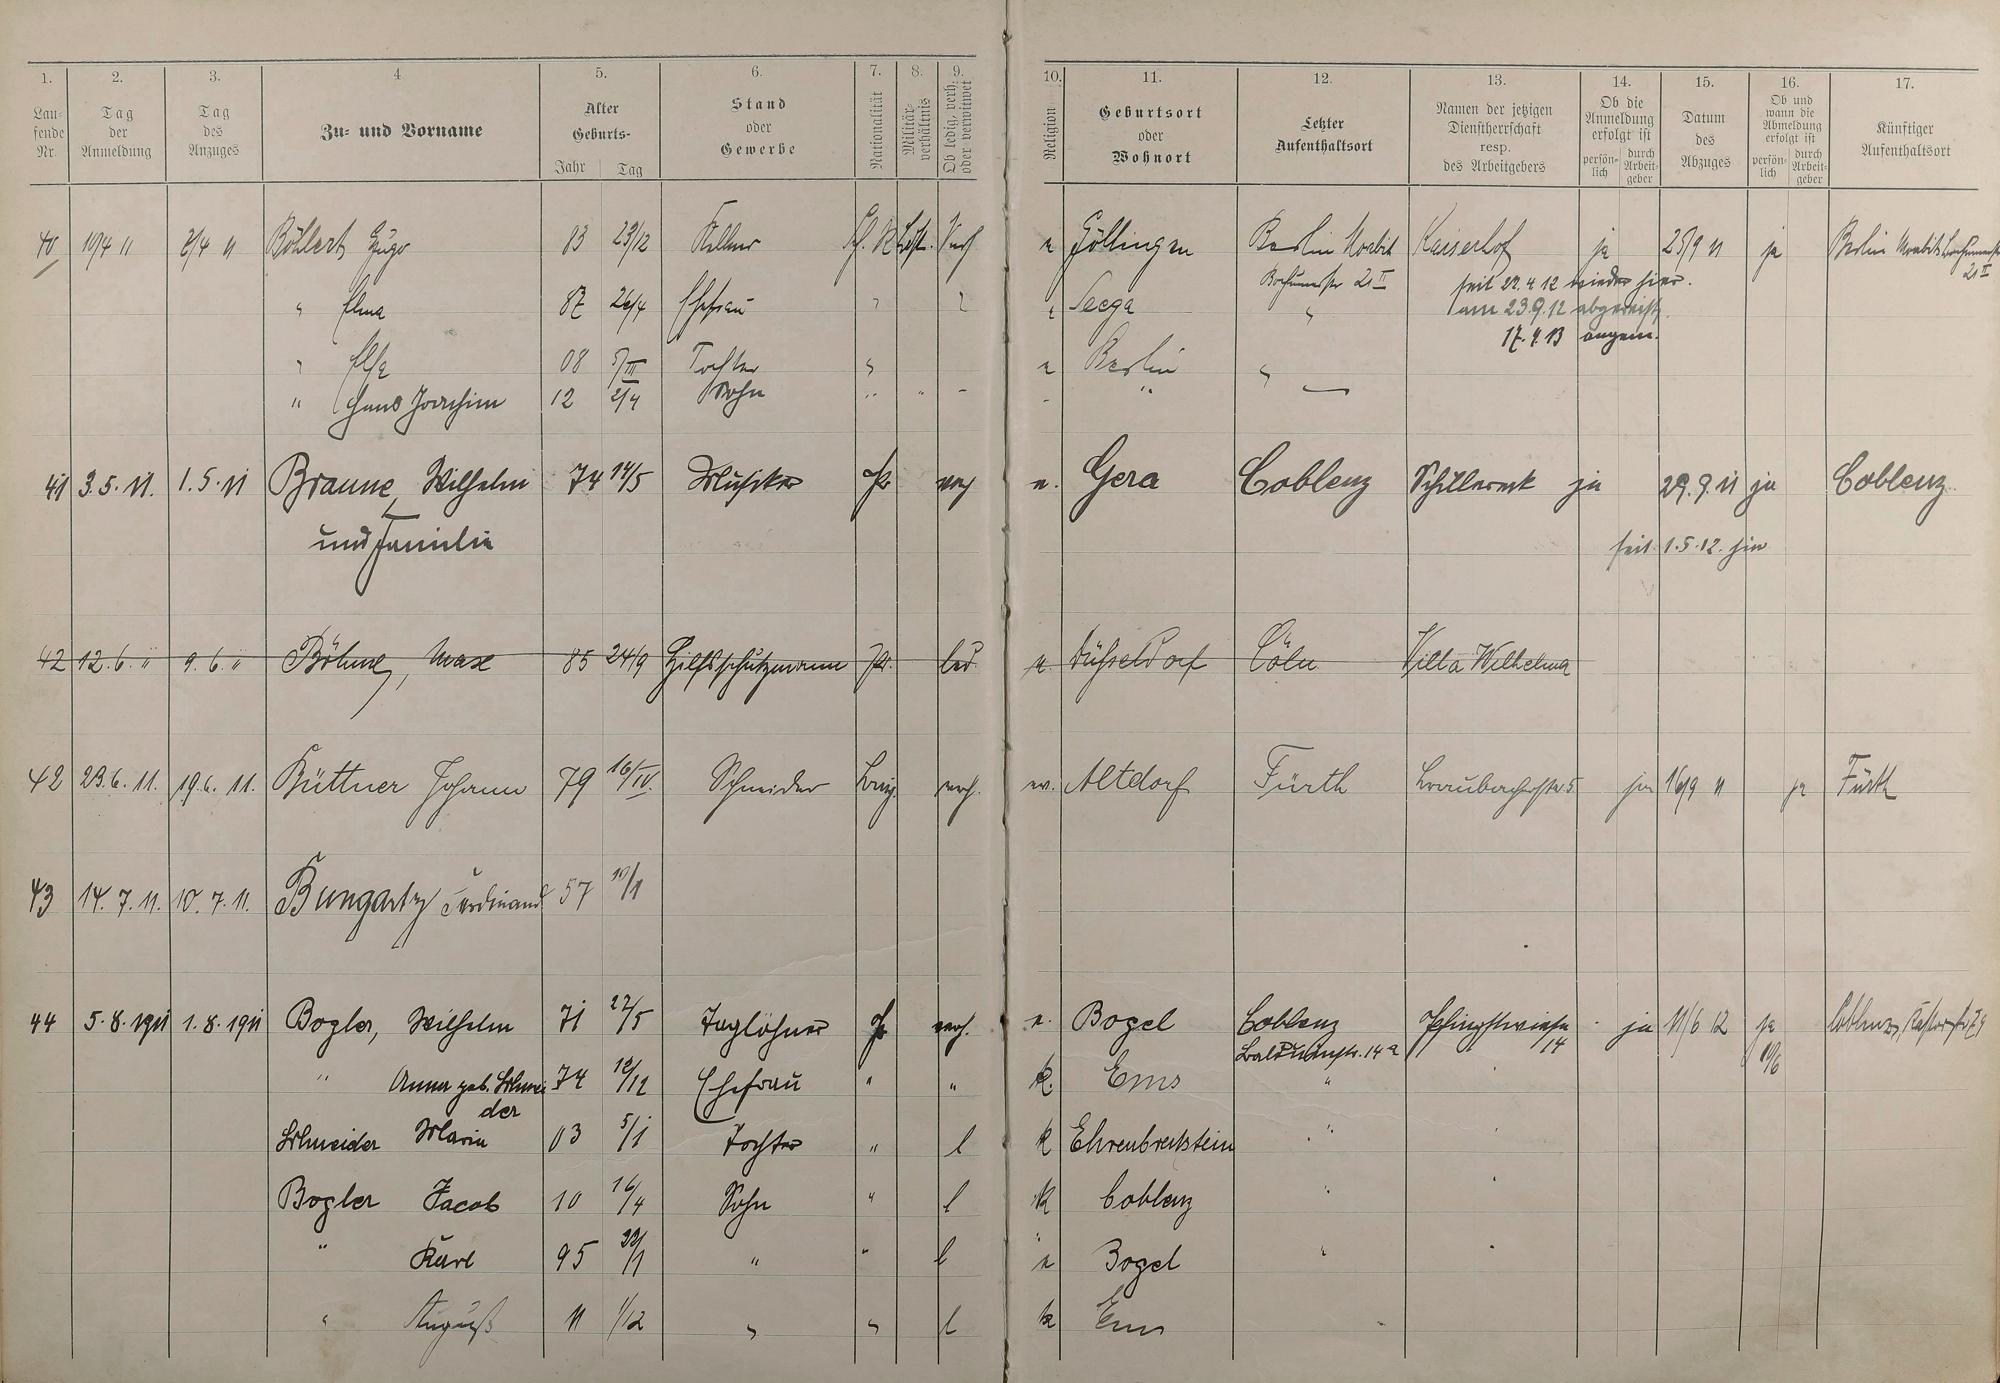 1. 2. 3. 4 5. 6. 7. 8. 9. 10. 11. 12. 13. 14. 15. 16. 17.
Lau-
fende
Nr.
Tag
der
Anmeldung
Tag
des
Anzuges
Zu- und Vorname
Alter
Geburts-
Jahr Tag
Stand
oder
Gewerbe
Nationalität
Militär-
verhältnis
Ob ledig, verh.
oder verwitwet
Religion
Geburtsort
oder
Wohnort
Letzter
Aufenthaltsort
Namen der jetzigen
Dienstherrschaft
resp.
des Arbeitgebers
Ob die
Anmeldung
erfolgt ist
persön-
lich
durch
Arbeit-
geber
Datum
des
Abzuges
Ob und
wann die
Abmeldung
erfolgt ist
persön-
lich
durch
Arbeit-
geber
Künftiger
Aufenthaltsort
40 10/4 11 7/4 11 Böhlert Hugo 83 23/12 Kellner Verh e Göttingen Berlin Moabit Kaiserhof ja 25/9 11 ja Berlin Moabit
21 II
Bochumerstr 21 II seit 22.4 12 wieder hier.
" Elma 87 26/4 Ehefrau " e Seega " am 23.9.12 abgereist.
17.4.13 angem.
" Else 08 5/III Tochter " e Berlin "
" Hans Joachim 12 2/4 Sohn " " - - "
41 3.5.11. 1.5.11 Braune, Wilhelm 74 14/5 Musiker Pr verh e. Gera Coblenz Schillereck ja 29.9.11 ja Coblenz
und Familie seit 1.5.12. hier
42 12.6.11 9.6.11 Böhme, Max 85 24/9 Hilfsschutzmann Pr. led. e. Düsseldorf Cöln Villa Wilhelma
42 23.6.11. 19.6.11. Büttner Johann 79 16/IV. Schneider verh. ev. Altdorf Fürth ja 16/9 11 ja Fürth
43 14.7.11. 10.7.11. Bungartz Ferdinand 57 10/1
44 5.8.1911 1.8.1911 Bogler, Wilhelm 71 27/5 Taglöhner Pr verh. e. Bogel Coblenz Pfingstwiese ja 11/6 12 ja
Balduinstr. 14a 14 10/6
" Anna geb. Schnei 74 12/12 Ehefrau " " k. Ems "
der
Schneider Maria 03 5/1 Tochter " l k Ehrenbreitstein "
Bogler Jacob 10 16/4 Sohn " l k Coblenz "
" Karl 95 22/1 " " l e Bogel "
" August 11 1/12 " " l k Ems